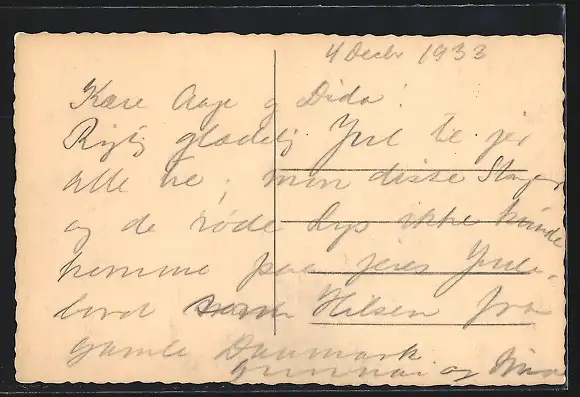 4 Decbr 1933
Kære Aage og Dida!
Rigtig glædelig Jul te jer
alle tre, mon disse
og de røde Lys ikke kunde
komme paa jeres Jule-
bord som Hilsen fra
gamle Danmark
Gunnar og